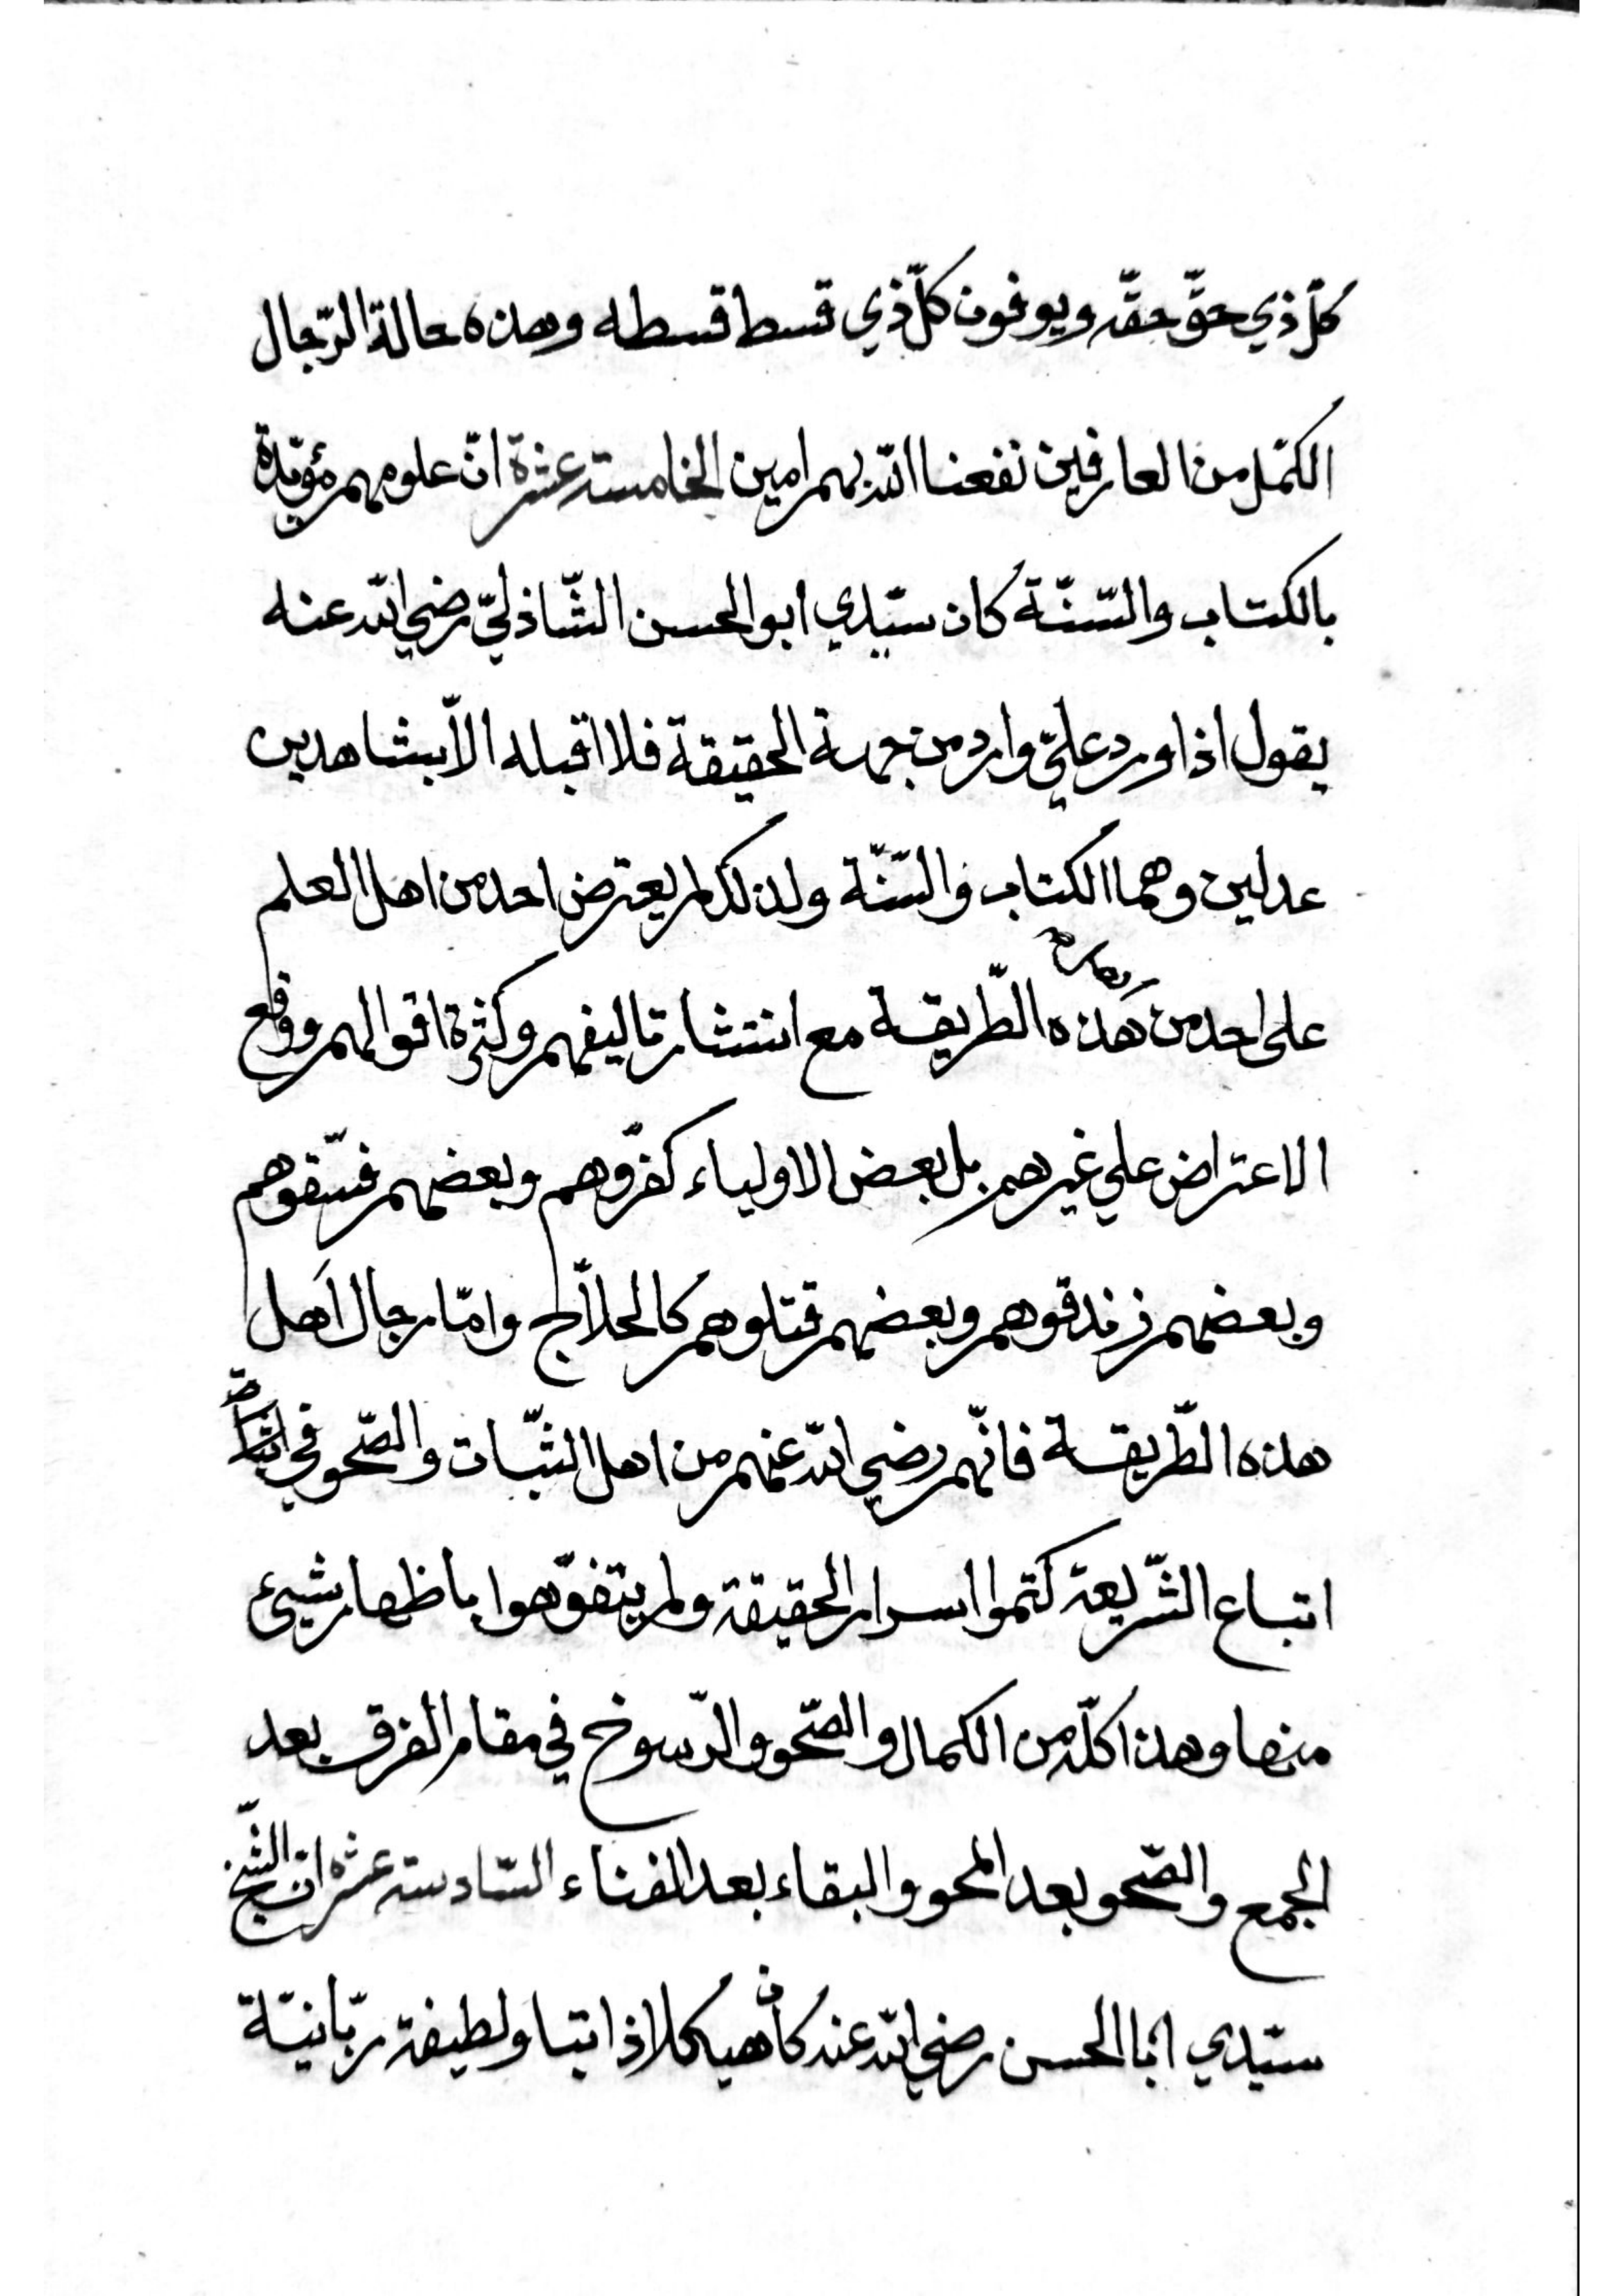 كلّ ذي حقّ حقّه ويوفون كلّ ذي قسط قسطه وهذه حالة الرّجال
الكمّل من العارفين نفعنا الله بهم امين الخامسة عشرة انّ علومهم مؤيّدة
بالكتاب والسّنّة كان سيّدي ابو الحسن الشّاذليّ رضي الله عنه
يقول اذا ورد عليّ وارد من جهة الحقيقة فلا اقبله الاّ بشاهدين
عدلين وهما الكتاب والسّنّة ولذلك لم يعترض احد من اهل العلم
على احد من هَذه الطّريقة مع انتشار تاليفهم وكثرة اقوالهم ووقع
الاعتراض علي غيرهم بل بعض الاولياء كفّروهم وبعضهم فسّقوهم
وبعضهم زندقوهم وبعضهم قتلوهم كالحلاّج وامّا رجال اَهل
هذه الطّريقة فانّهم رضي الله عنهم من اهل الثّبات والصّحو في
اتباع الشّريعة كتموا اسرار الحقيقة ولم يتفوّهوا باظهار شيئ
منها وهذا كلّه من الكمال والصّحو والرّسوخ في مقام الفرق بعد
الجمع والصّحو بعد المحو والبقاء بعد الفناء السّادسة عشره انّ الشّيخ
سيّدي ابا الحسن رضي الله عنه كان هيكلا ذاتيا ولطيفة ربّانيّة